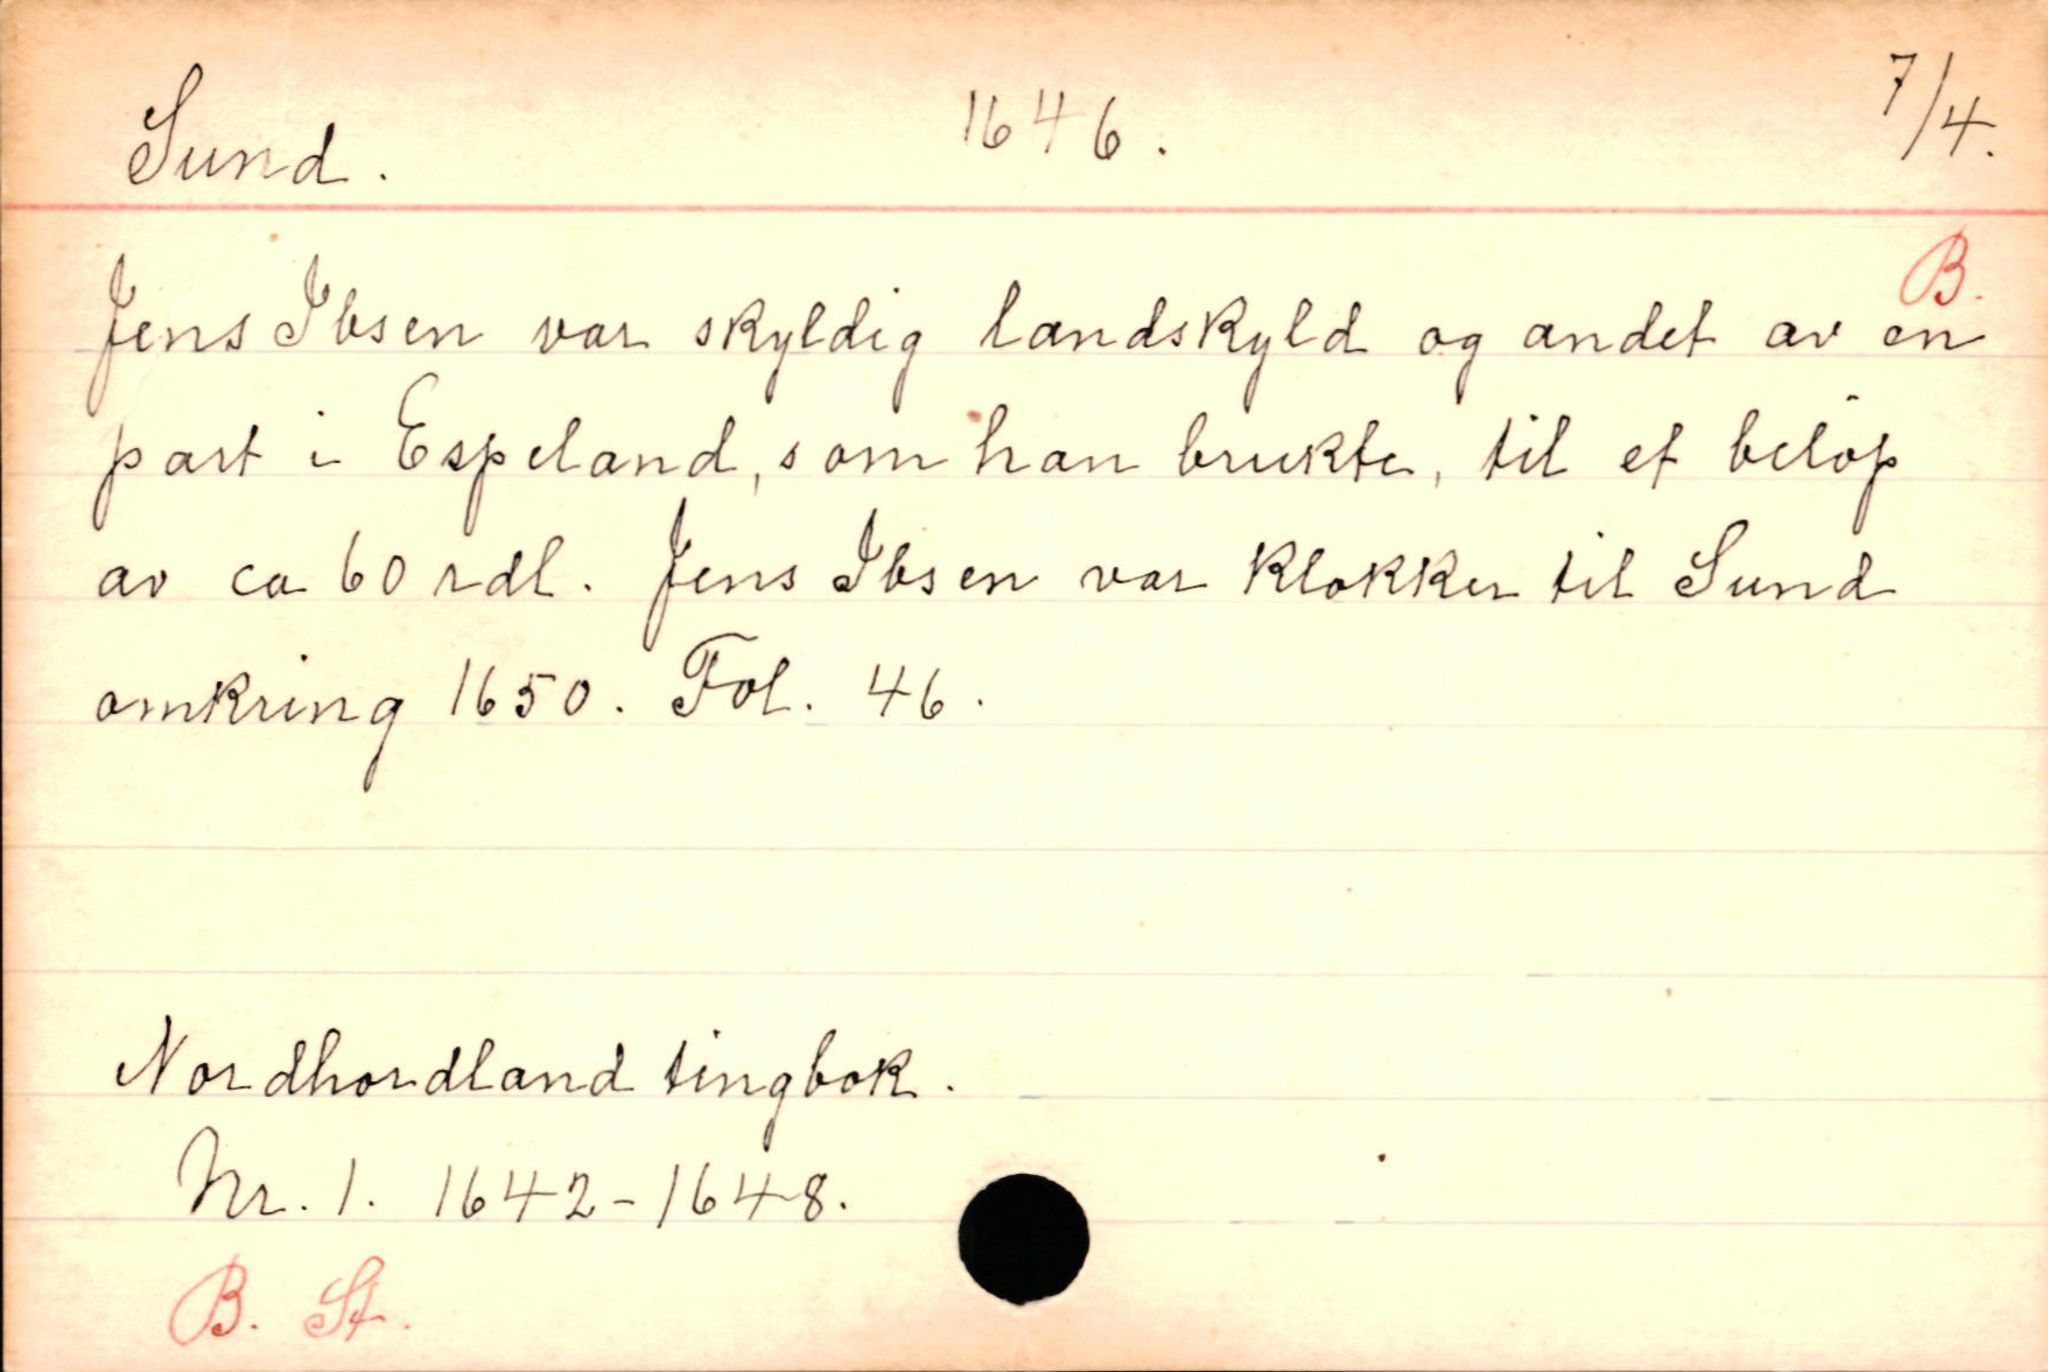 Sund. 1646. 7/4.
B.
Jens Ibsen var skyldig landskyld og andet av en
part i Espeland, som han brukte, til et beløp
av ca 60 rdl. Jens Ibsen var klokker til Sund
omkring 1650. Fol. 46.
Nordhordland tingbok.
Nr. 1. 1642-1648.
B. St.